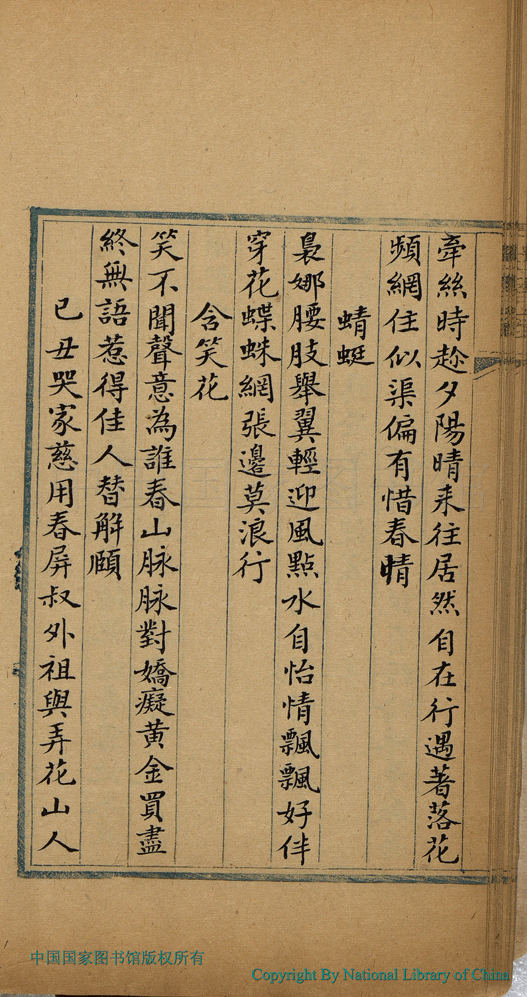 牽絲時趁夕陽晴来往居然自在行遇著落花
頻網住似渠偏有惜春晴
蜻蜓
裊娜腰肢舉翼輕迎風點水自怡情飄飄好伴
穿花蝶蛛網張邊莫浪行
含笑花
笑不聞聲意為誰春山脉脉對嬌癡黄金買盡
終無語惹得佳人替解頤
己丑哭家慈用春屏叔外祖與弄花山人
中国国家图书馆版权所有
Copyright By National Library of China